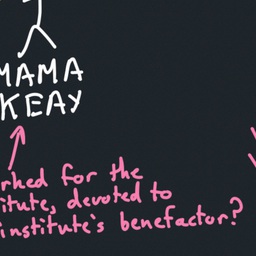 MAMA
KEAY
rked for the
itute, devoted to
institute's benefactor?